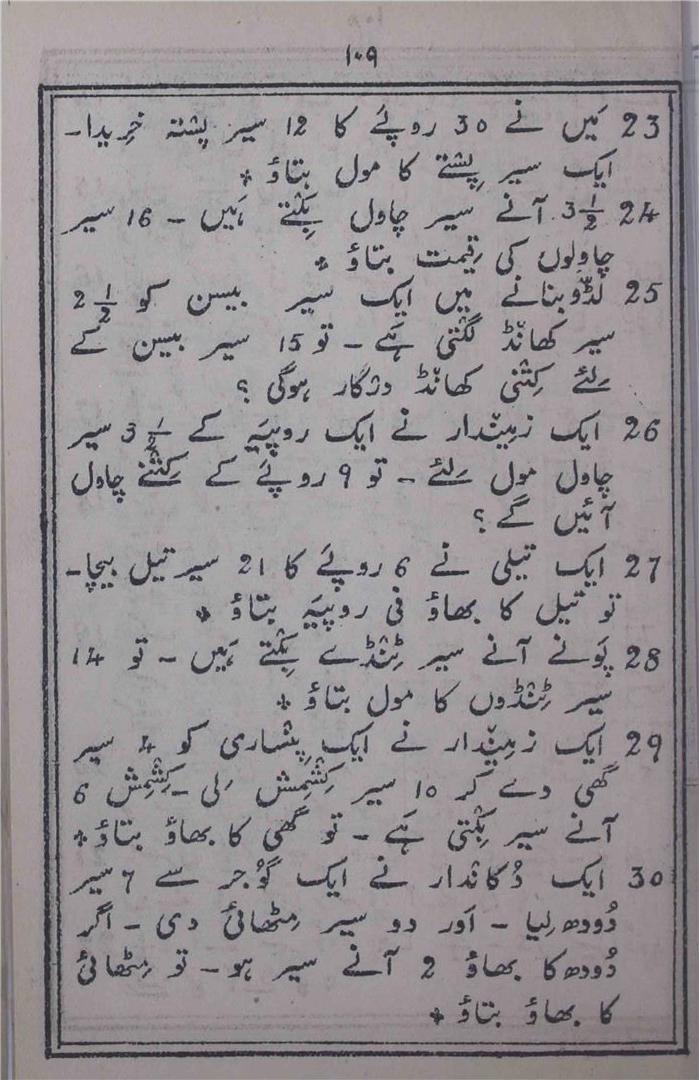 ۱۰۹
23 مَیں نے 30 روپَے کا 12 سیر پشتہ خرِیدا۔
ایک سیر پِشتے کا مول بتاؤ *
24 3 1/2 آنے سیر چاول بِکْتے ہَیں ۔ 16 سیر
چاوِلوں کی قِیمت بتاؤ *
25 لڈّو بنانے میں ایک سیر بیسن کو 2 1/2
سیر کھانْڈ لگْتی ہَے ۔ تو 15 سیر بیسن کے
لِئے کِتْنی کھانْڈ درْکار ہوگی ؟
26 ایک زمِینْدار نے ایک روپیَہ کے 3 1/2 سیر
چاول مول لِئے ۔ تو 9 روپَے کے کِتْنے چاول
آئیں گے ؟
27 ایک تیلی نے 6 روپَے کا 21 سیر تیل بیچا۔
تو تیل کا بھاؤ فی روپیَہ بتاؤ *
28 پَونے آنے سیر ٹِنْڈے بِکْتے ہَیں ۔ تو 14
سیر ٹِنْڈوں کا مول بتاؤ *
29 ایک زمِینْدار نے ایک پنْساری کو 4 سیر
گھی دے کر 10 سیر کِشْمِش لی ۔ کِشْمِش 6
آنے سیر بِکْتی ہَے ۔ تو گھی کا بھاؤ بتاؤ *
30 ایک دُکانْدار نے ایک گُوجر سے 7 سیر
دُودھ لِیا ۔ اَور دو سیر مِٹھائی دی ۔ اگر
دُودھ کا بھاؤ 2 آنے سیر ہو ۔ تو مِٹھائی
کا بھاؤ بتاؤ *